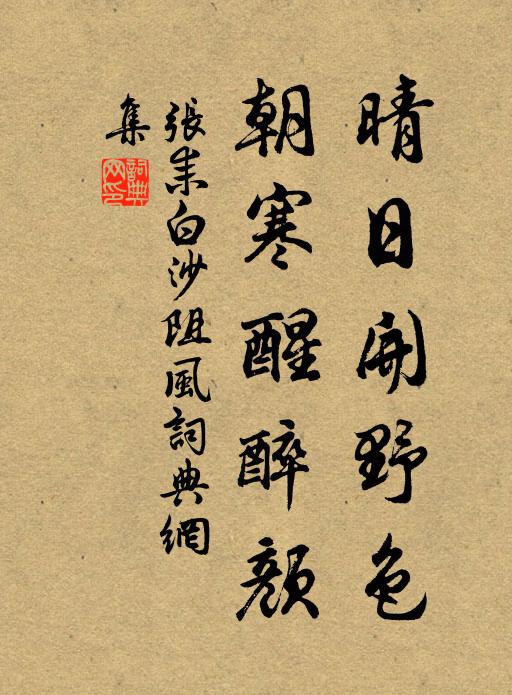 晴日開野色
朝寒醒醉顏
張耒白沙阻風詞典網
集
詞典
网印